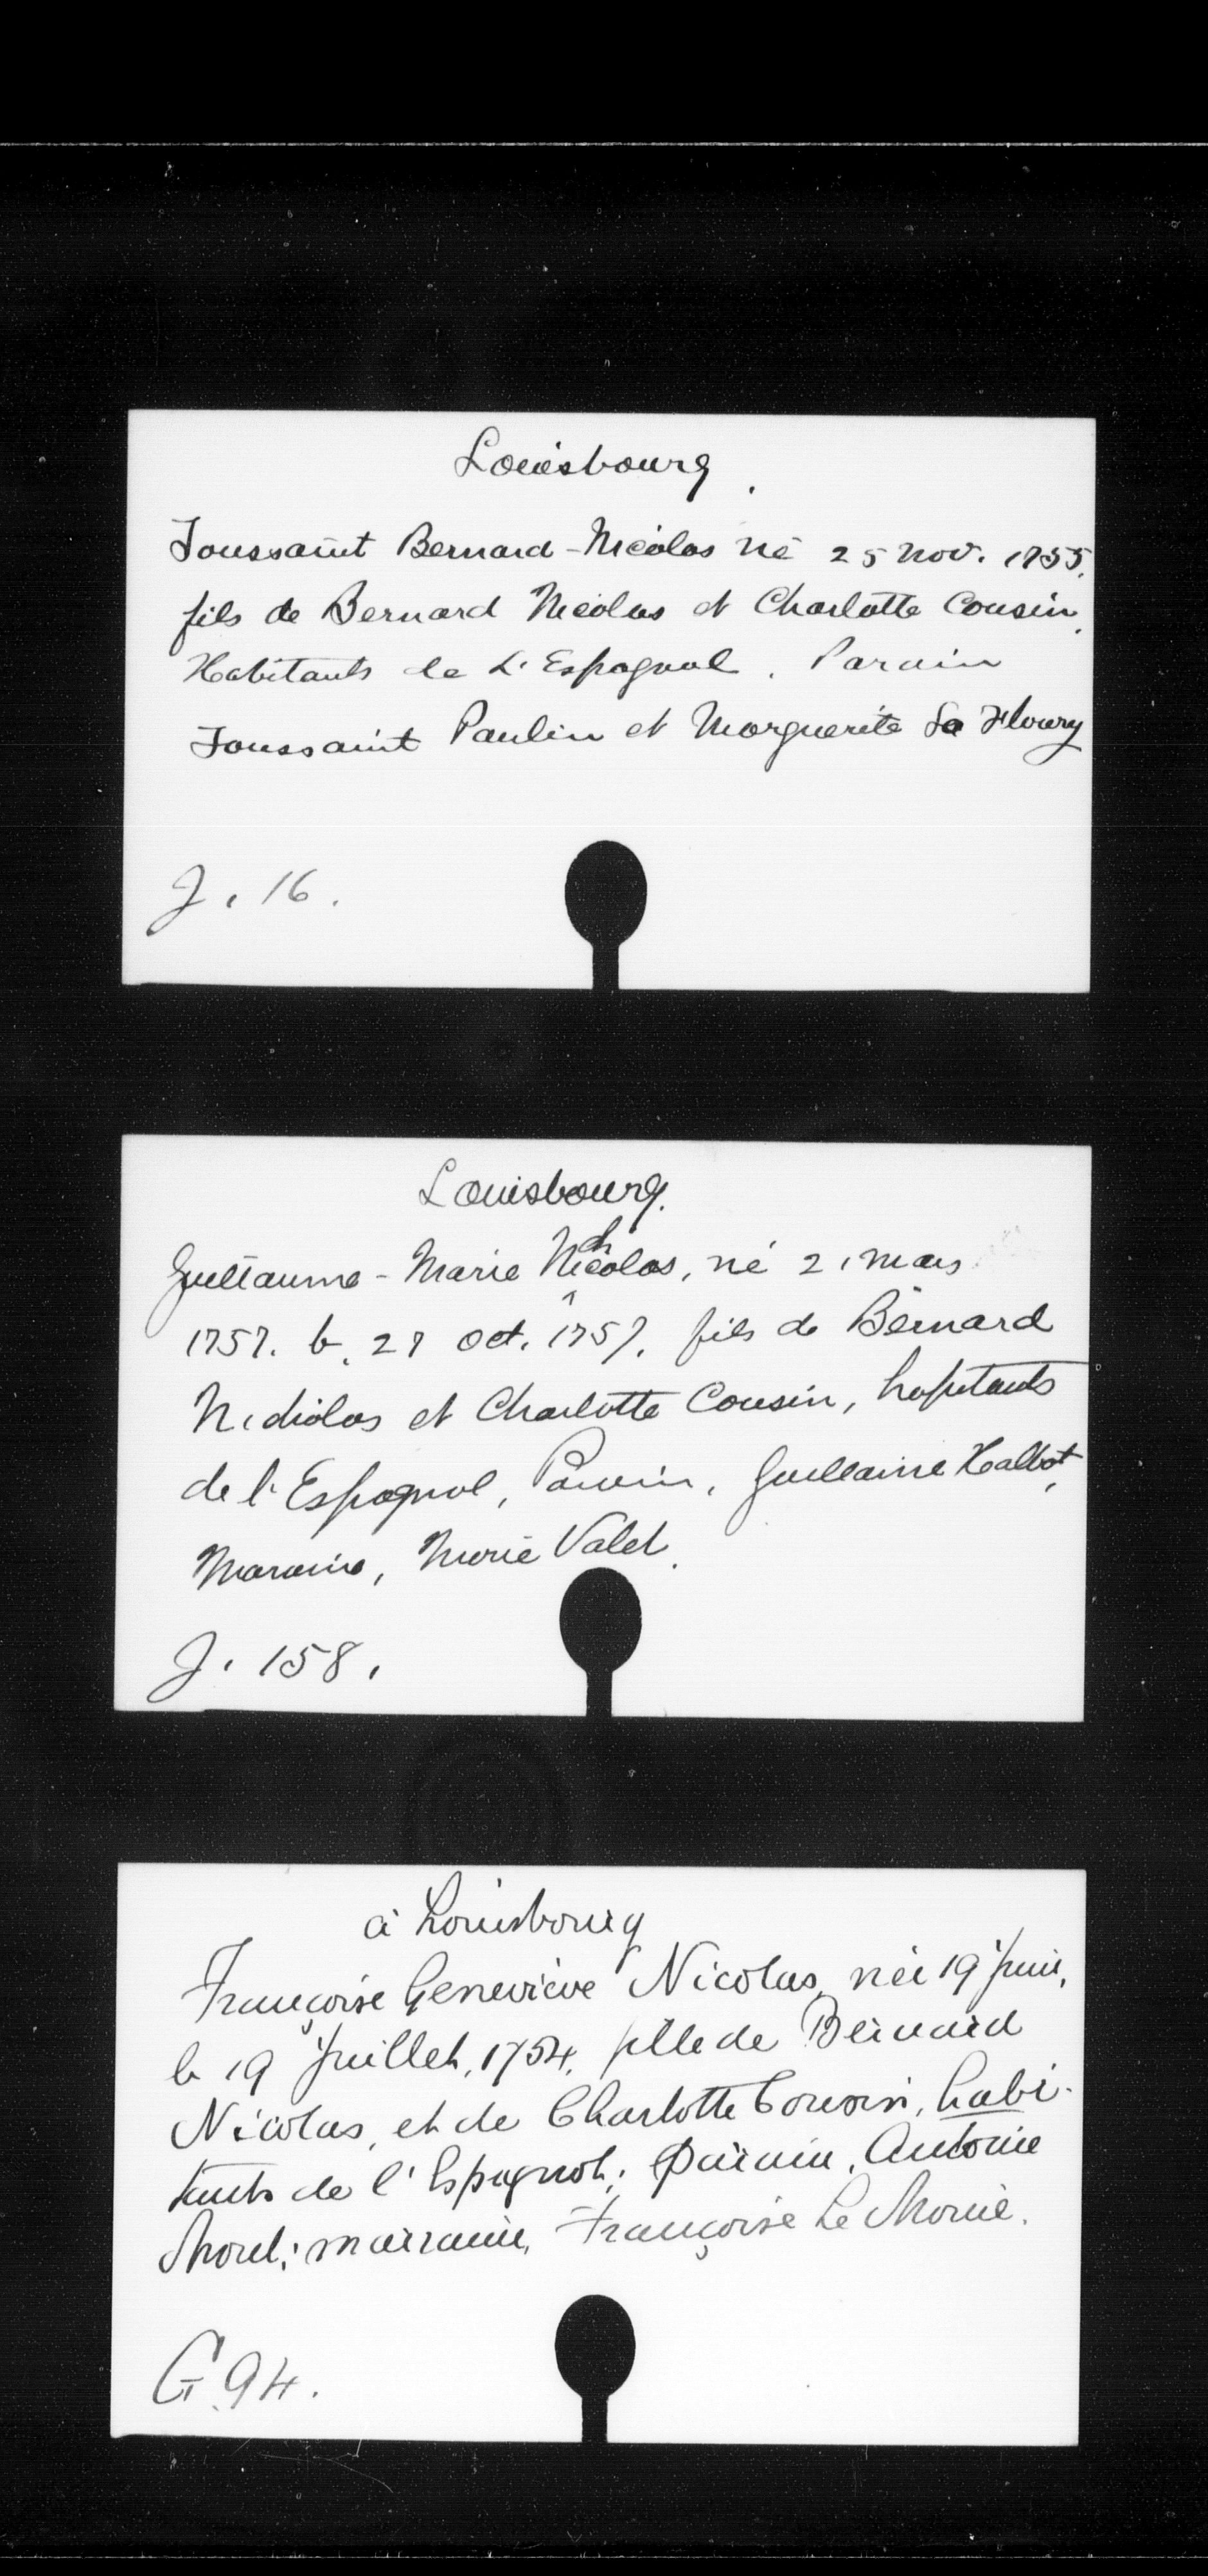 Louisbourg.
Toussaint Bernard-Nicolas né 25 Nov. 1755.
fils de Bernard Nicolas et Charlotte Cousin.
Habitants de L'Espagnol. Parain
Toussaint Paulin et Marguerite La Floury
J. 16.
Louisbourg.
Guillaume-Marie Nicholas, né 2, mars
1757. b. 27 oct. 1757, fils de Bernard
Nicholas et Charlotte Cousin, hapitants
de l'Espagnol, Parain, Guillaume Halbot,
Maraine, Marie Valet.
J. 158.
à Louisbourg
Françoise Geneviève Nicolas, née 19 juin,
b 19 juillet, 1754, fille de Bernard
Nicolas, et de Charlotte Cousin, habi-
tants de l'Espagnol; Parain, Antoine
Morel; marraine, Françoise Le
G. 94.